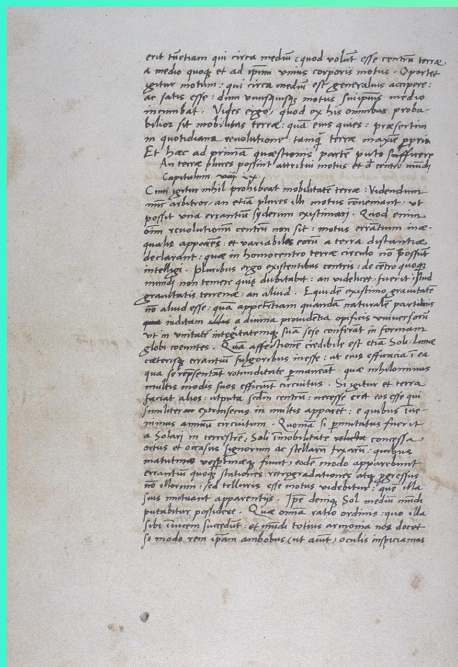 erit tūetiam qui circa mediū: quod volūt esse centrū terrae
a medio quoqȝ et ad ipm̄ unius corporis motus. Oportet
igitur motum: qui circa mediū est generalius accipere:
ac satis esse: dum unusquisqȝ motus suiipsius medio
incūbat. Vides ergo, quod ex his omnibus proba
bilior sit mobilitas terrae, quā eius quies: praesertim
in quotidiana revolutione tamqȝ terrae maxīe ppria
Et haec ad primā quaestionis partē puto sufficere
An terrae plures possint attribui motus et d' centro mūdi
Capitulum
Cum igitur nihil prohibeat mobilitatē terrae: Videndum
nūc arbitror: an etiā plures illi motus conveniant: ut
possit una errantiū syderum existimari. Quod enim
oīm revolutionū centrū non sit: motus errātium inae
qualis apparēs: et variabiles eorū a terra distantiae
declarant: quae in homocentro terrae circulo nō possūt
intelligi. Pluribus ergo existentibus centris: de cētro quoqȝ
mūdi non temere quis dubitabit: an videlicet fuerit istud
gravitatis terrenae: an aliud. Equidē existimo gravitatē
nō aliud esse: quā appetētiam quandā naturalē partibus
inditam a divina providētia opificis universorū
ut in unitatē integritatēmqȝ suā sese conferāt in formam
globi coeuntes. Quā affectionē credibile est etiā Soli Lunae
caeterisqȝ errantiū fulgoribus inesse: ut eius efficacia ī ea
qua se repraesentāt rotunditate pmaneāt. quae nihilominus
multis modis suos efficiūt circuitus. Si igitur et terra
faciat alios: utputa sedm centrū: necesse erit eos esse qui
similiter extrinsecus in multis apparēt: e quibus inve
nimus annuū circuitum. Quoniā si pmutatus fuerit
a Solari in terrestrē, Soli īmobilitate concessa
ortus et occasus signorum ac stellarū fixarū: quibus
matutinae vespertinaeqȝ fiunt, eodē modo apparebunt
errantiū quoqȝ stationes: retrogradationes atqȝ pgressus
nō illorum: sed telluris esse motus videbitur: que illa
suis mutuant apparentiis. Ipse deniqȝ Sol mediū mūdi
putabitur possidere. Quae omīa ratio ordinis: quo illa
sibi īvicem succedūt: et mūdi totius armonia nos docet
si modo rem ipsam ambobus (ut aiūt) oculis inspiciamus